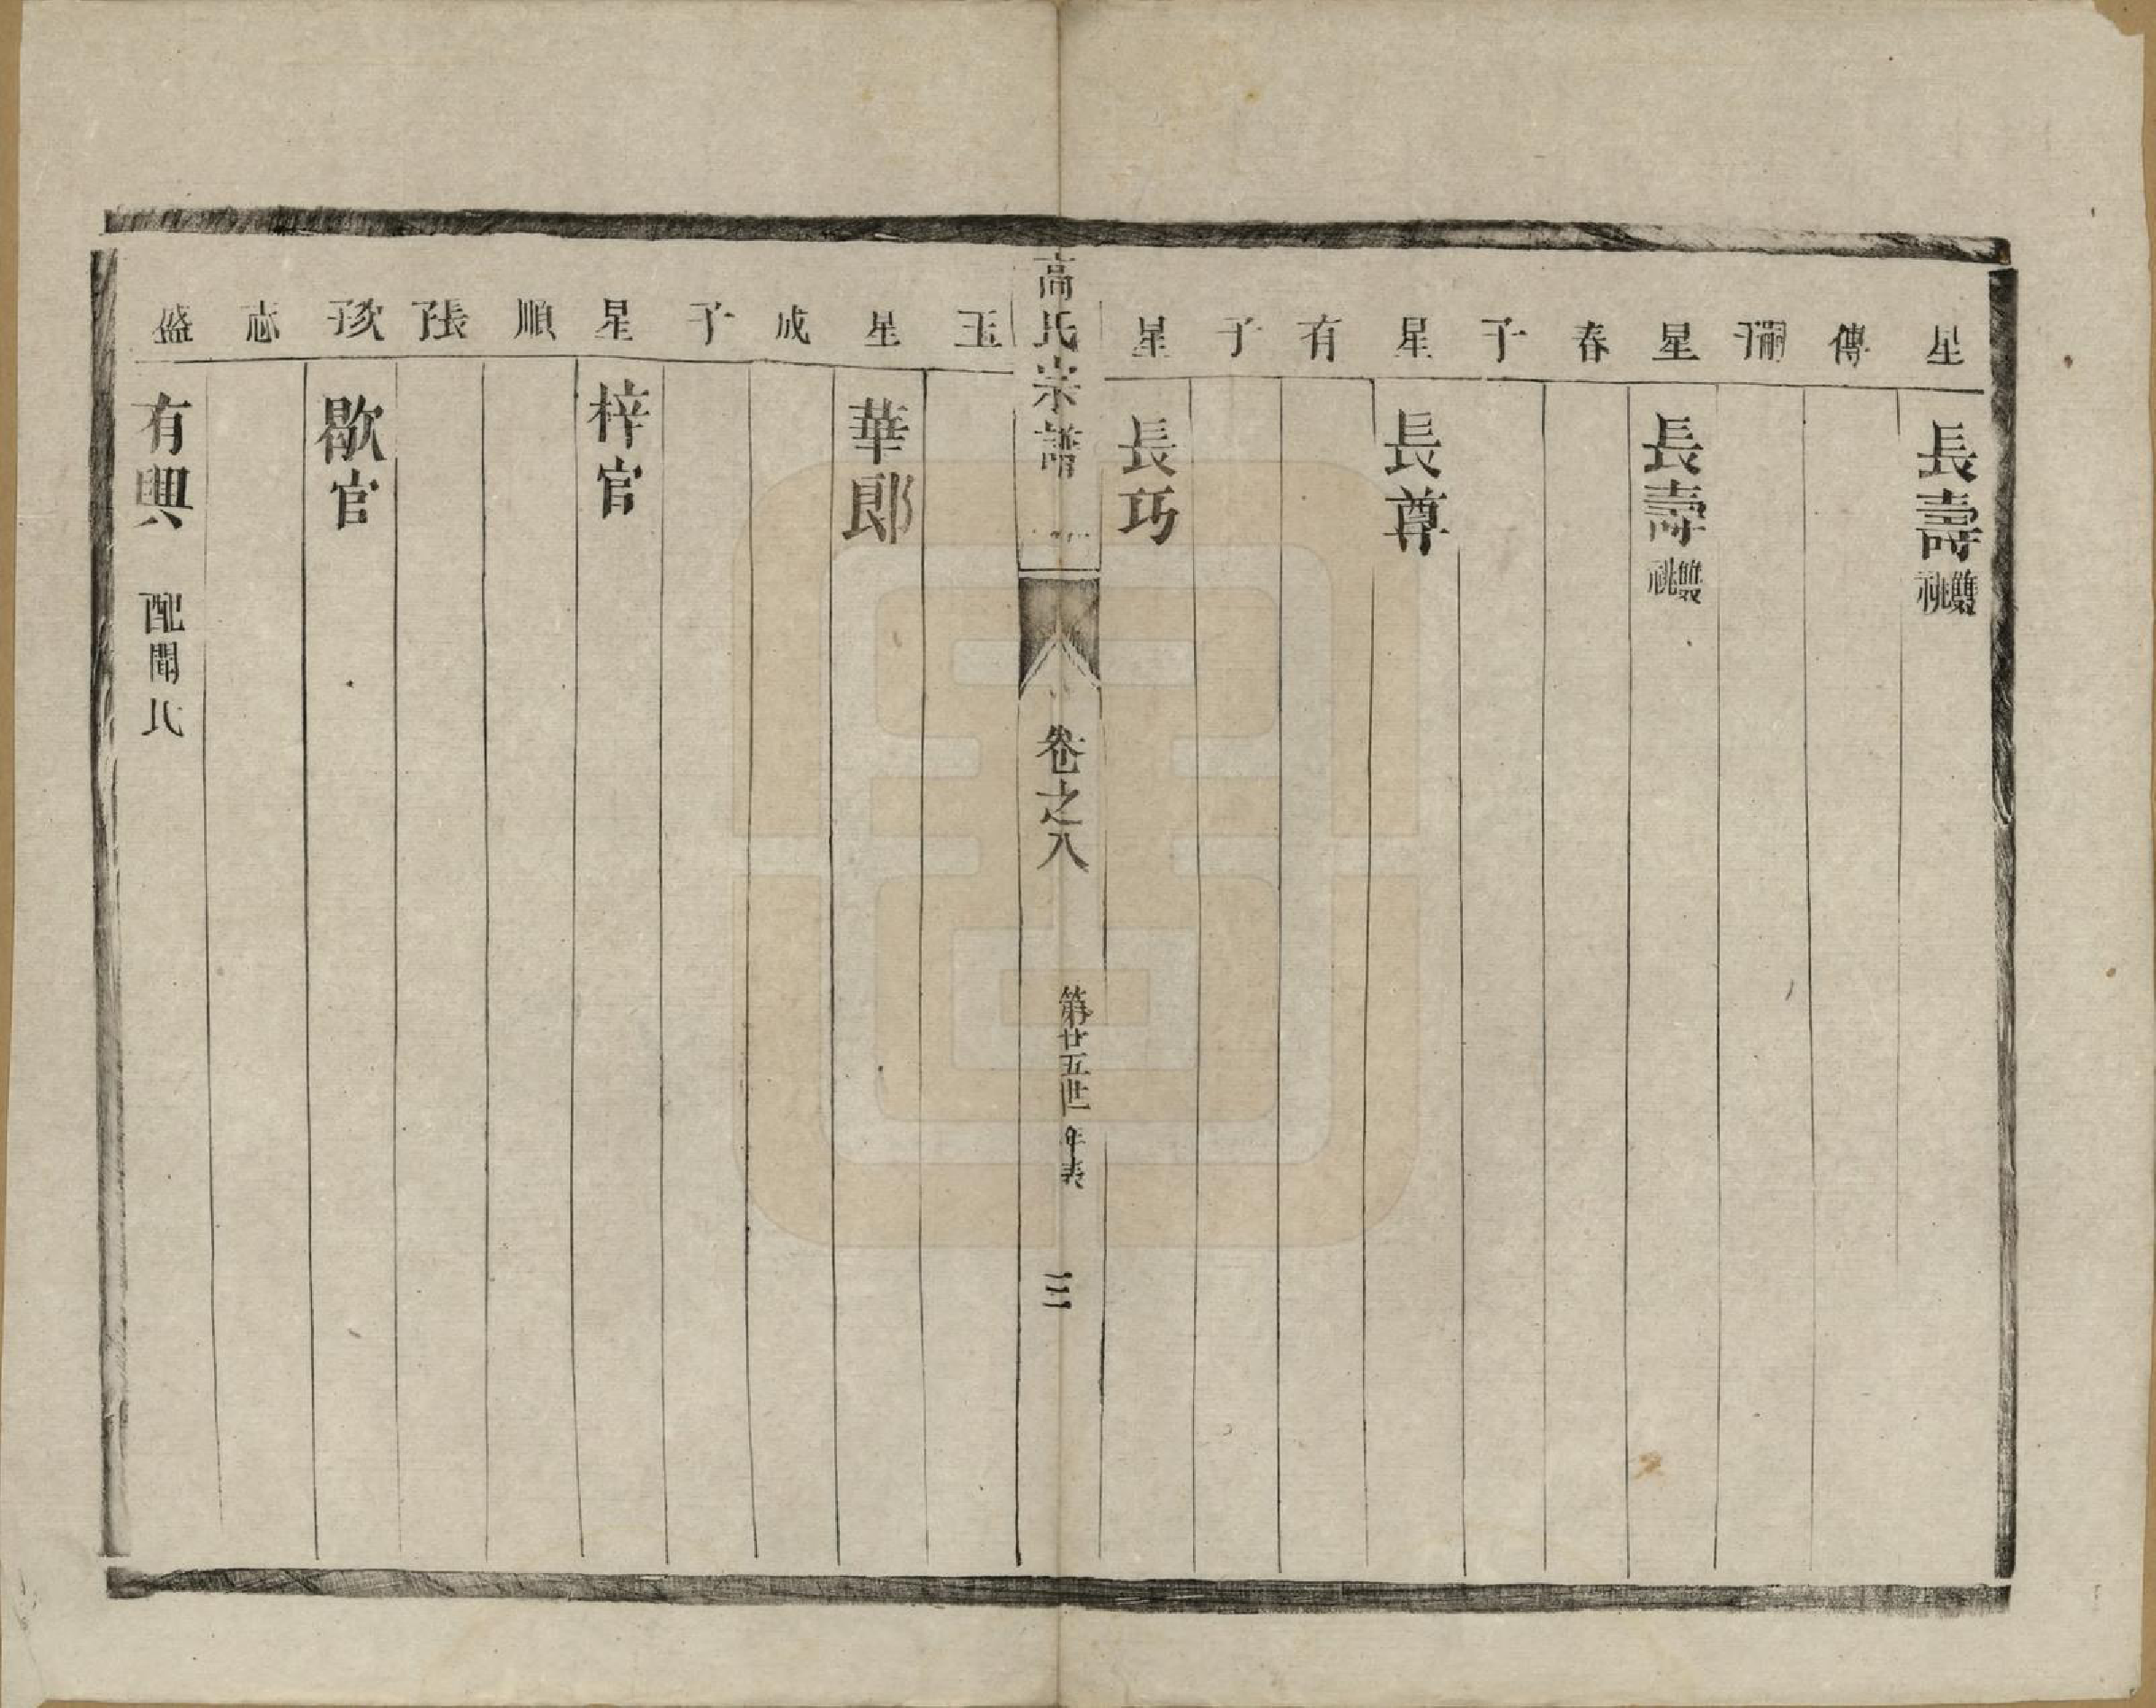 星 長壽 雙祧
傳
嗣子
星 長壽 雙祧
春
子
星 長尊
有
子
星 長巧
高氏宗譜 卷之八 第廿五世 年表 三
玉
星 華郎
成
子
星 梓官
順
張子
次子 歇官
志
盛 有興 配聞氏